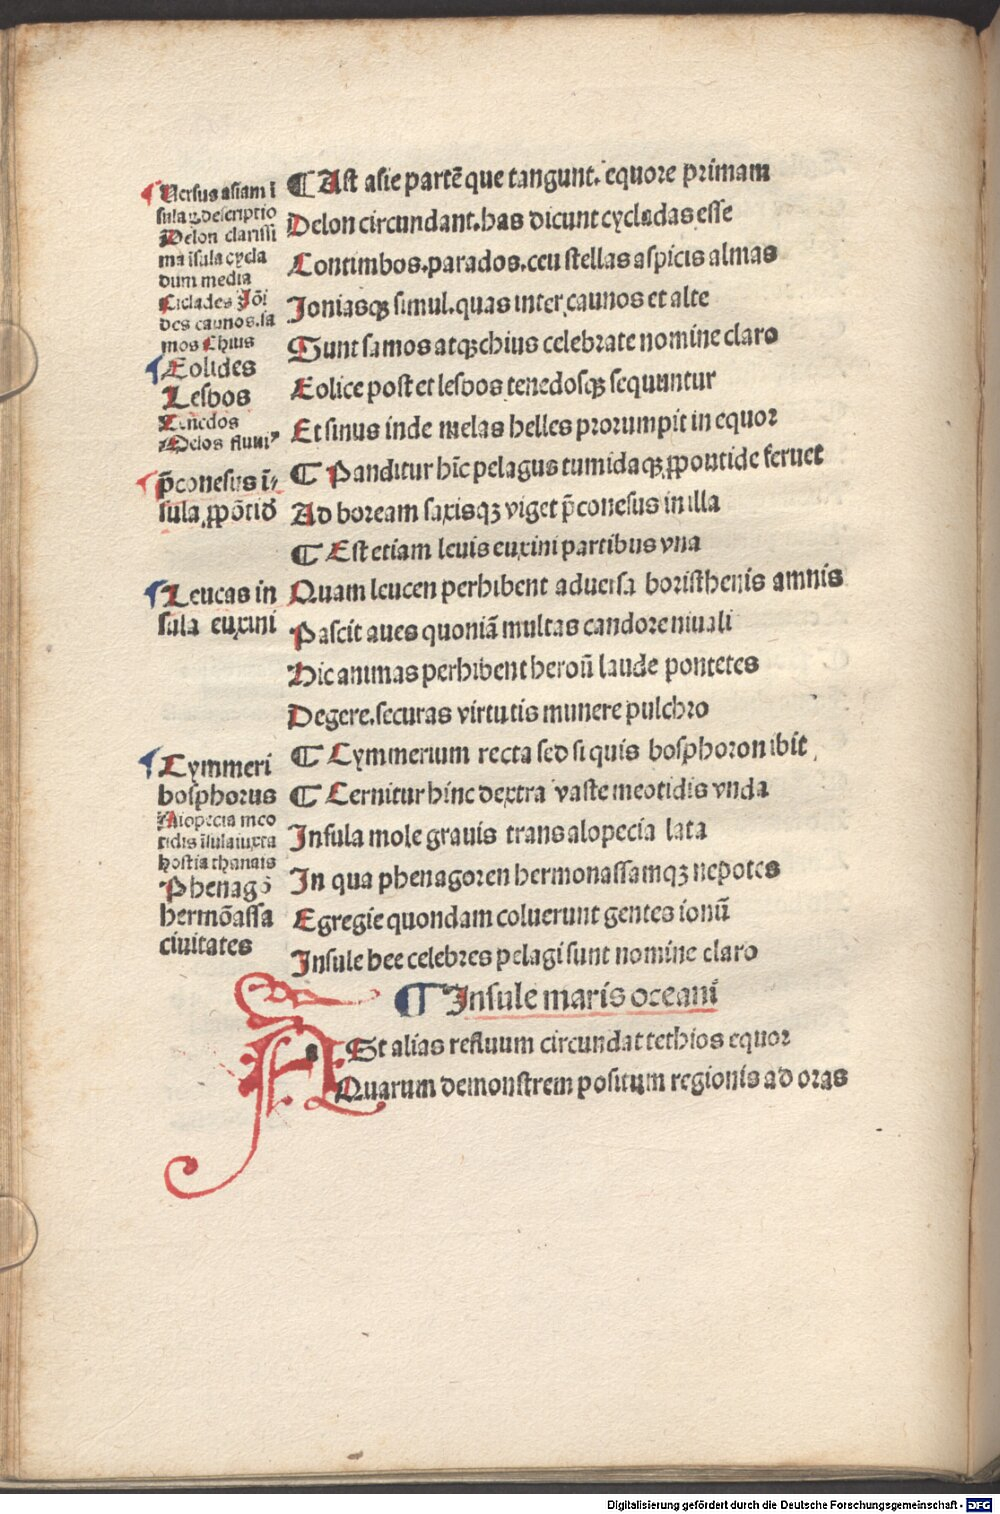 Versus asiam ī
sulaꝝ descriptio
Delon clarissi
ma īsula cycla
dum media
Ciclades Iōi
des caunos.sa
mos Chius
Eolides
Lesbos
Tenedos
Delos fluuiꝰ
p̄conesus ī
sula ꝓpōtid
Leucas in
sula euxini
Cymmeri
bosphorus
Alopecia meo
tidis īsula iuxta
hostia thanais
Phenagō
hermōassa
ciuitates
¶ Ast asie partē que tangunt. equore primam
Delon circundant.has dicunt cycladas esse
Contimbos.parados.ceu stellas aspicis almas
Ioniasqꝫ simul.quas inter caunos et alte
Sunt samos atqꝫ chius celebrate nomine claro
Eolice post et lesbos tenedosqꝫ sequuntur
Et sinus inde melas helles prorumpit in equor
¶ Panditur hīc pelagus tumidaqꝫ ꝓpontide feruet
Ad boream saxisqꝫ viget p̄conesus in illa
¶ Est etiam leuis euxini partibus vna
Quam leucen perhibent aduersa boristhenis amnis
Pascit aues quoniā multas candore niuali
Hic animas perhibent heroū laude pontetes
Degere.securas virtutis munere pulchro
¶ Cymmerium recta sed si quis bosphoron ibit
¶ Cernitur hinc dextra vaste meotidis vnda
Insula mole grauis trans alopecia lata
In qua phenagoren hermonassamqꝫ nepotes
Egregie quondam coluerunt gentes ionū
Insule hee celebres pelagi sunt nomine claro
¶ Insule maris oceani
A St alias refluum circundat tethios equor
Quarum demonstrem positum regionis ad oras
Digitalisierung gefördert durch die Deutsche Forschungsgemeinschaft - DFG